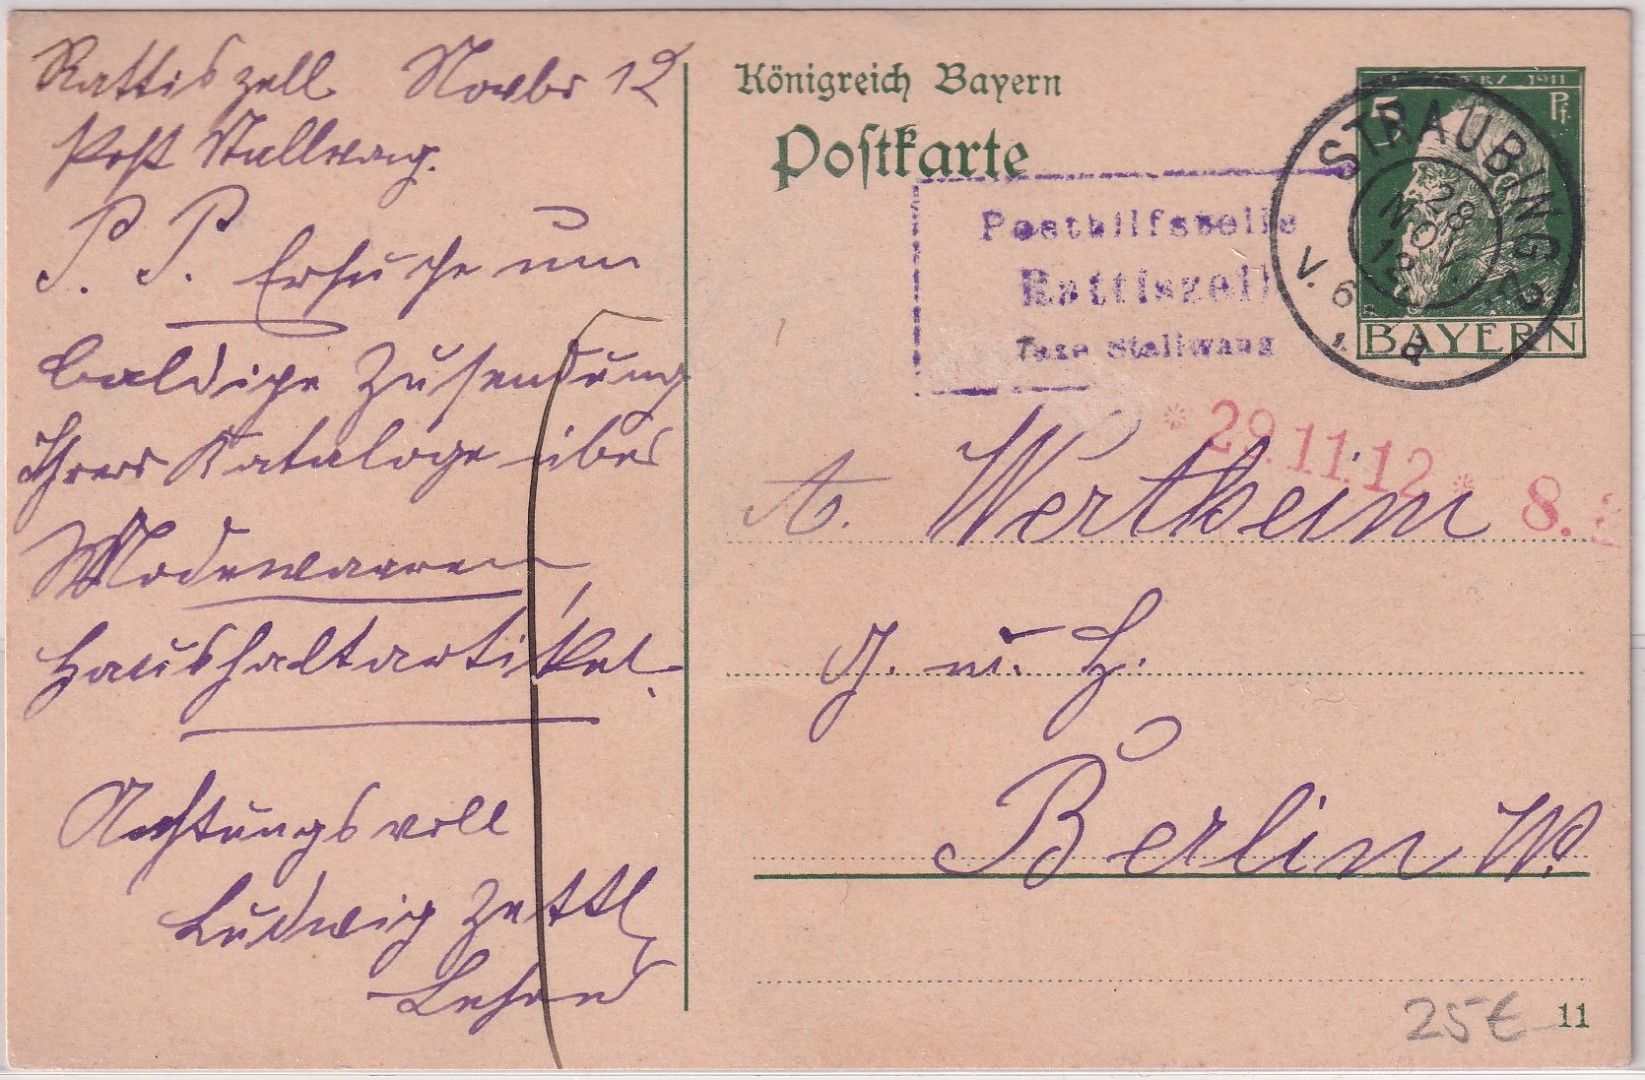 Rattiszell Novbr 12
Post Stallwang.
P. P. Ersuche um
baldige Zusendung
Ihrer Kataloge über
Modewaaren,
Haushaltartikel.
Achtungsvoll
Ludwig Zettl
Lehrer
Königreich Bayern
Postkarte
Posthilfsstelle
Rattiszell
Taxe Stallwang
5 Pf.
1911
BAYERN
STRAUBING 2
28
NOV
12
V. 6
a
* 29.11.12 * 8.
A. Wertheim
G. m. H.
Berlin W.
25€
11